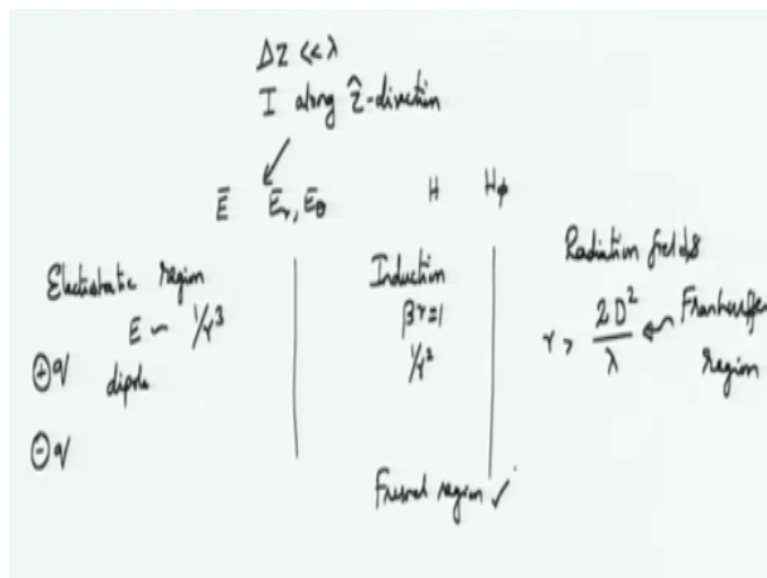 ΔZ << λ
I along ẑ-direction
Ē Er, Eθ H Hφ
Electrostatic region
E ~ 1/r³
dipole
⊕q
⊖q
Induction
βr=1
1/r²
Fresnel region ✓
Radiation fields
r > 2D²/λ ←
region